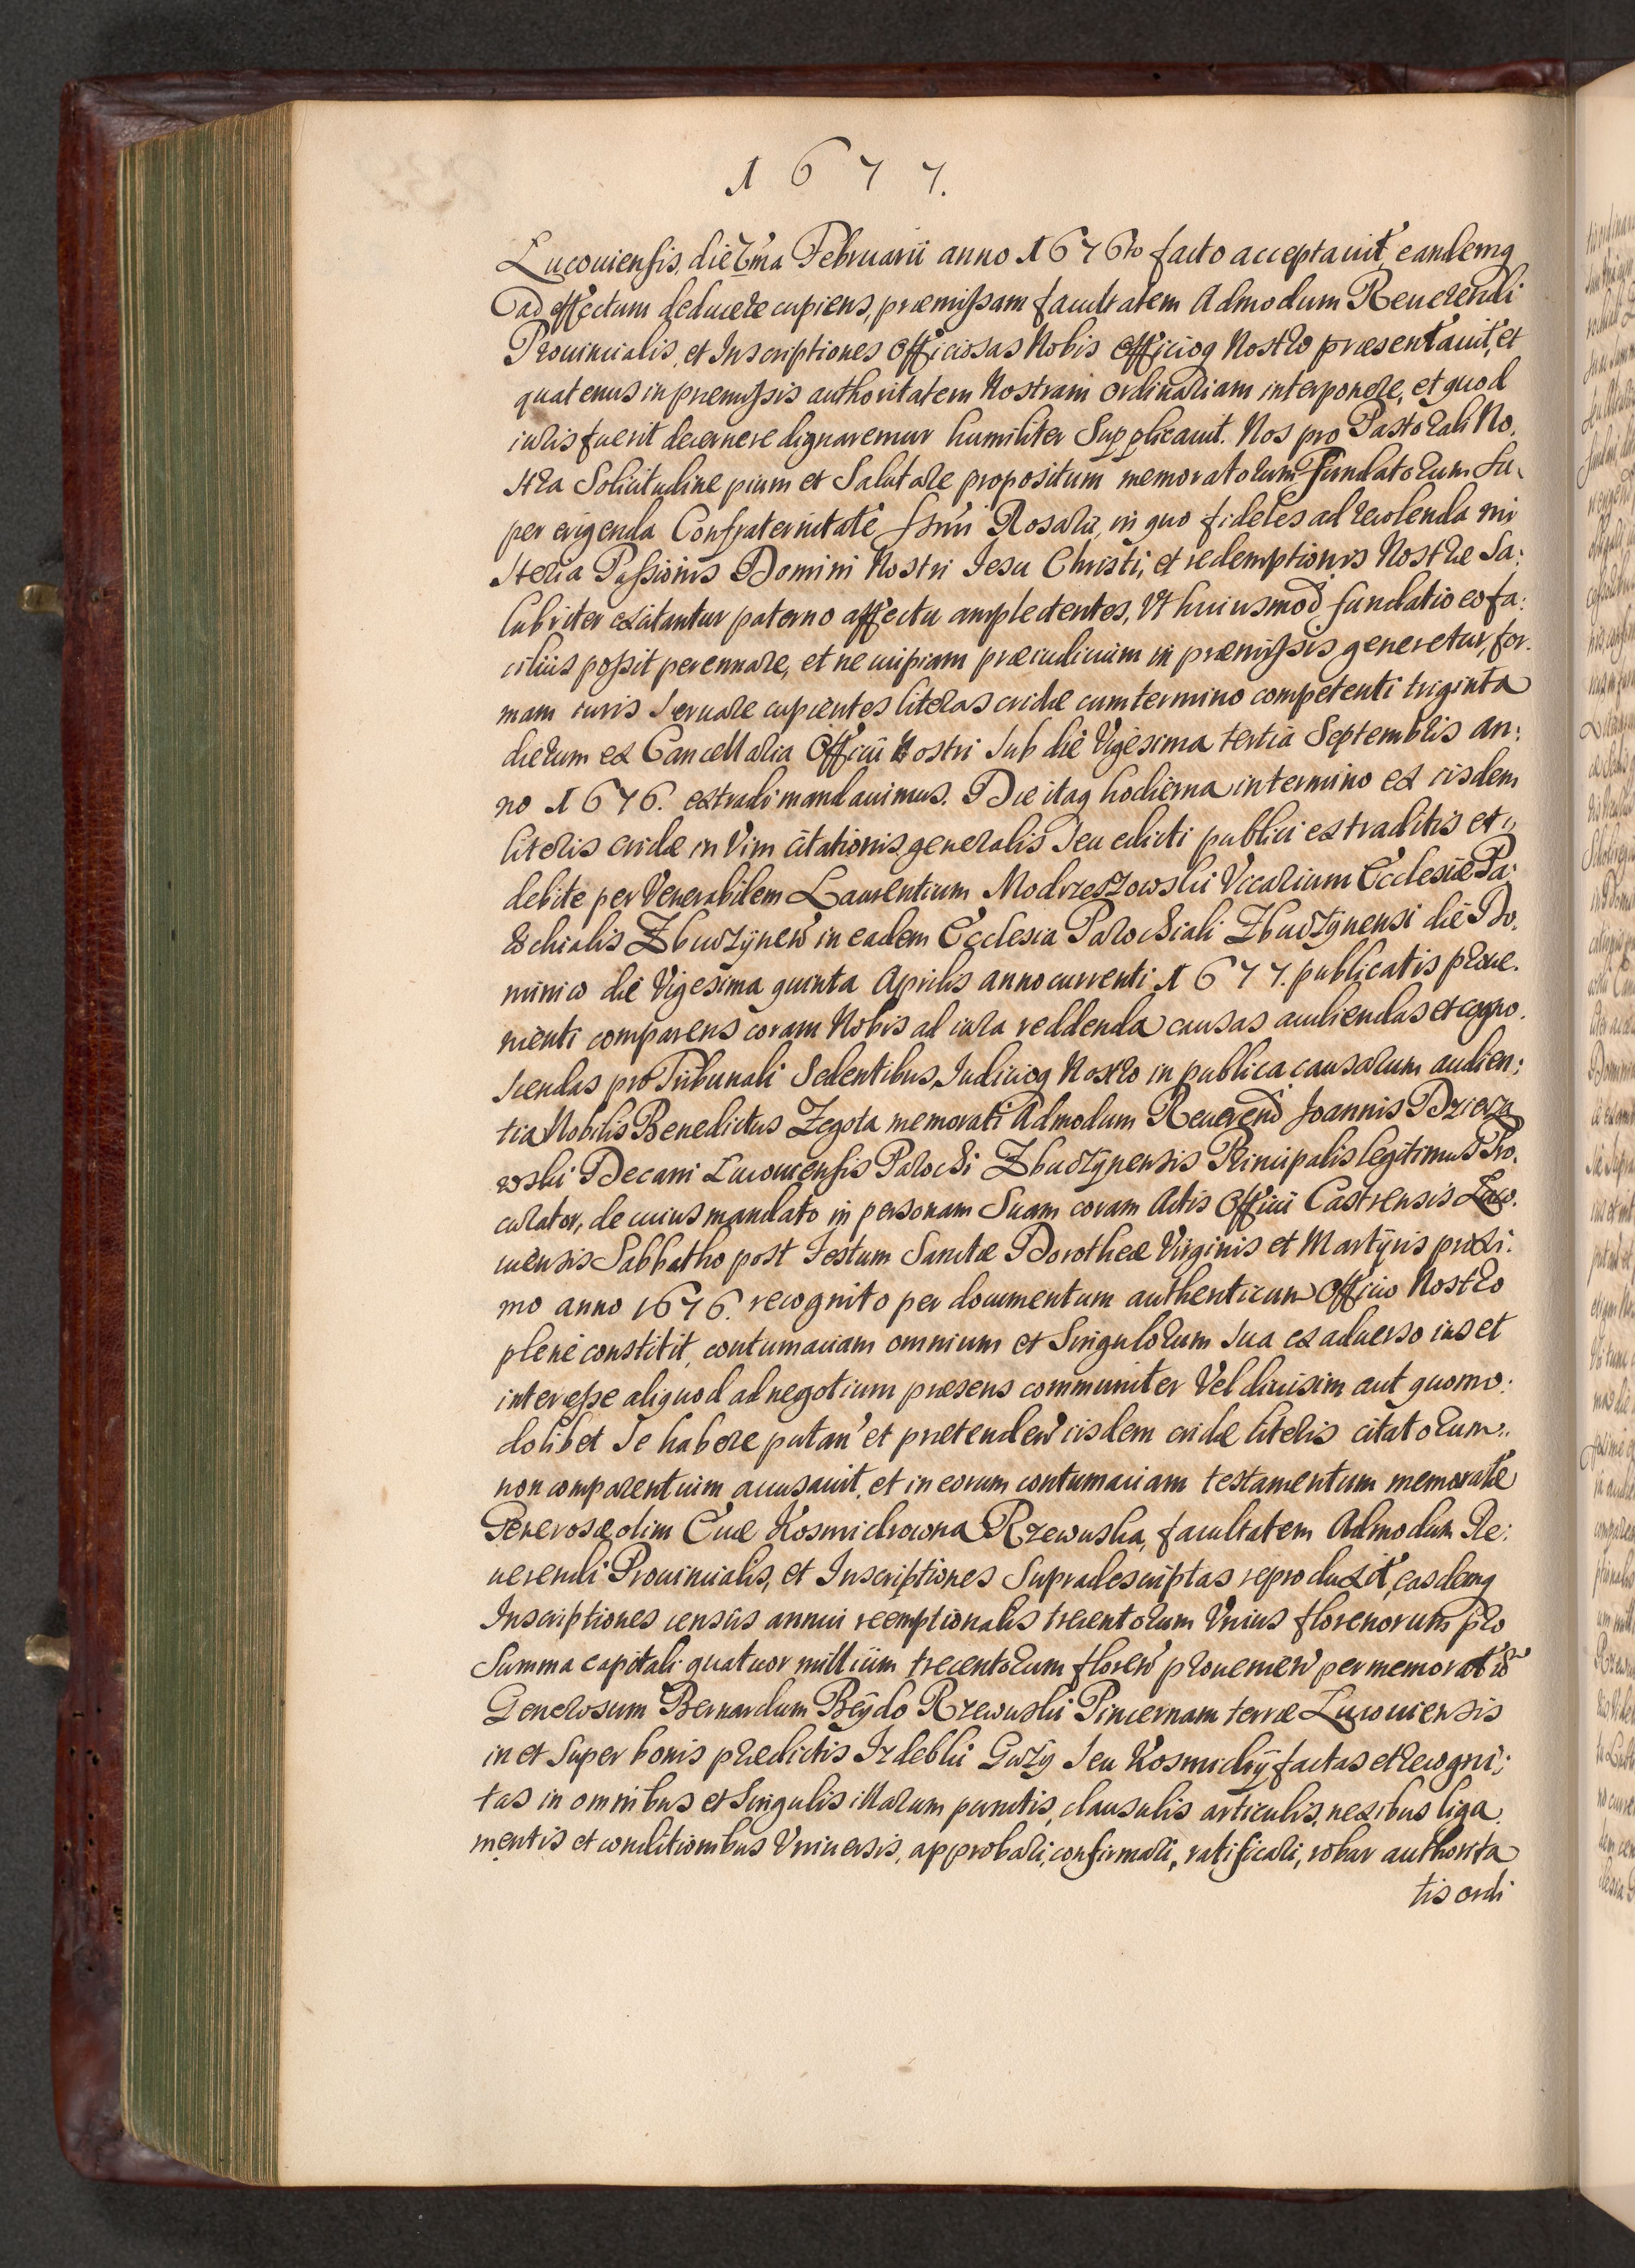 1677.
Lucouiensis, die 7ma Februarii anno 1676to facto acceptauit, eandemq
ad effectum deducere cupiens, præmissam facultatem Admodum Reuerendi
Prouincialis, et Inscriptiones officiosas Nobis officioq Nostro præsentauit, et
quatenus in præmissis authoritatem Nostram ordinariam interponere, et quod
iuris fuerit decernere dignaremur humiliter Supplicauit. Nos pro Pastorali No,
stra Solicitudine pium et Salutare propositum memoratorum Fundatorum Su,
per erigenda Confraternitate Ssmi Rosarii, in quo fideles ad recolenda mi
steria Passionis Domini Nostri Iesu Christi, et redemptionis Nostræ Sa:
lubriter excitantur paterno affectu amplectentes, Vt huiusmod fundatio eo fa:
cilius possit perennare, et ne cuipiam præiudicium in præmissis generetur, for.
mam iuris Seruare cupientes literas cridæ cum termino competenti triginta
dierum ex Cancellaria Officii Nostri sub die Vigesima tertia Septembris an:
no 1676. extradi mandauimus. Die itaq hodierna in termino ex iisdem
literis cridæ in Vim citationis generalis seu edicti publici extraditis et
debite per Venerabilem Laurentium Modrzeszowski Vicarium Ecclesiæ Pa:
rochialis Zbuczynen in eadem Ecclesia Parochiali Zbuczynensi die Do.
minico die Vigesima quinta Aprilis anno currenti 1677. publicatis proue.
nienti comparens coram Nobis ad iura reddenda causas audiendas et cogno.
scendas pro Tribunali Sedentibus, Iudicioq Nostro in publica causarum audien:
tia Nobilis Benedictus Zegota memorati Admodum Reuerend Joannis Dzierza
wski Decani Lucouiensis Parochi Zbuczynensis Principalis legitimus Pro.
curator, de cuius mandato in personam Suam coram Actis Officii Castrensis Luco.
uiensis Sabbatho post Festum Sanctæ Dorotheæ Virginis et Martyris proxi:
mo anno 1676. recognito per documentum authenticum Officio Nostro
plene constitit, contumaciam omnium et Singulorum sua ex aduerso ius et
interesse aliquod ad negotium præsens communiter Vel diuisim aut quomo:
dolibet Se habere putan et prætenden iisdem cridæ literis citatorum
non comparentium accusauit, et in eorum contumaciam testamentum memoratæ
Generosæ olim Euæ Kosmidrowna Rzewuska, facultatem Admodum Re:
uerendi Prouincialis, et Inscriptiones Supradescriptas reproduxit, easdemq
Inscriptiones census annui reemptionalis trecentorum Vnius florenorum pro
Summa capitali quatuor millium trecentorum floren prouenien per memorat
Generosum Bernardum Beydo Rzewuski Pincernam terræ Lucouiensis
in et Super bonis prædictis Izdebki Guzy seu Kosmidry factas et recogni:
tas in omnibus et Singulis illarum punctis, clausulis articulis, nexibus liga.
mentis et conditionibus Vniuersis, approbari, confirmari, ratificari, robur authorita
tis ordi